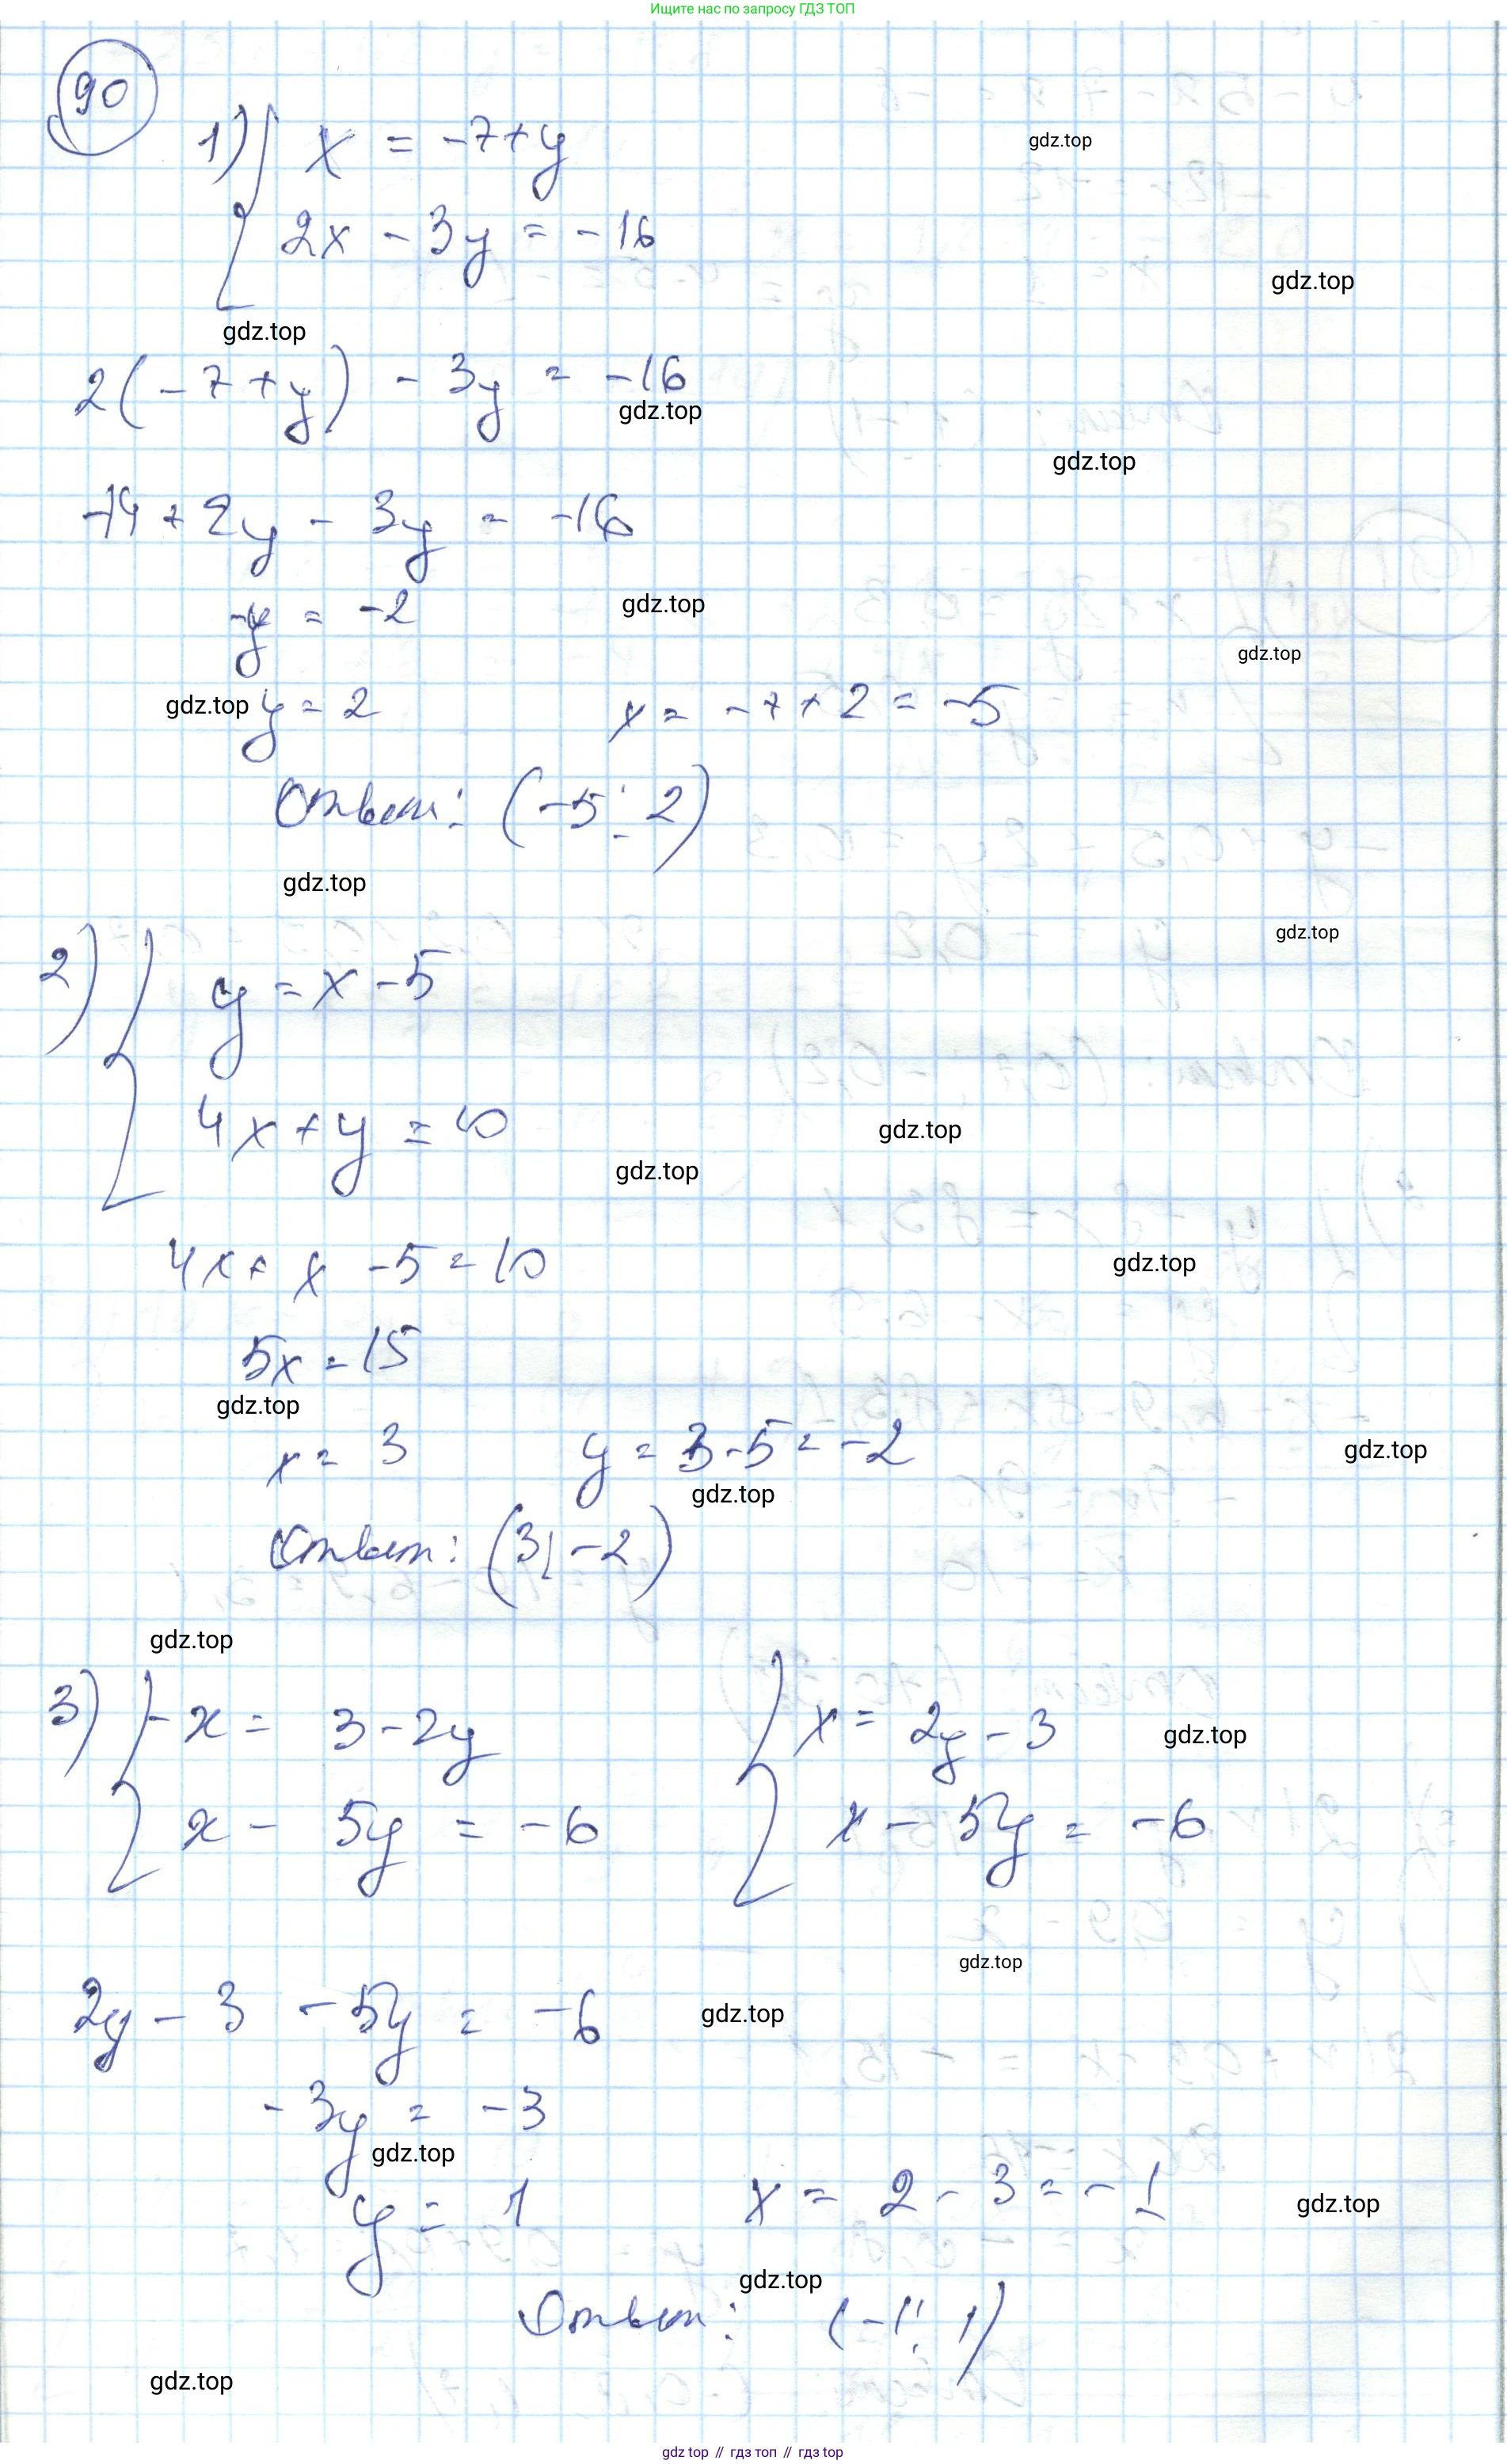 Ищите нас по запросу ГДЗ ТОП
90
1) { x = -7+y
gdz.top
2x - 3y = -16
gdz.top
gdz.top
2(-7+y) - 3y = -16
gdz.top
gdz.top
-14 + 2y - 3y = -16
-y = -2
gdz.top
gdz.top
gdz.top y = 2 x = -7+2 = -5
Ответ: (-5; 2)
gdz.top
gdz.top
2) { y = x - 5
4x + y = 10
gdz.top
gdz.top
4x + x - 5 = 10
gdz.top
5x = 15
gdz.top
x = 3 y = 3-5 = -2
gdz.top
gdz.top
Ответ: (3; -2)
gdz.top
3) { -x = 3-2y { x = 2y - 3
gdz.top
x - 5y = -6 x - 5y = -6
gdz.top
2y - 3 - 5y = -6
gdz.top
-3y = -3
gdz.top
y = 1 x = 2 - 3 = -1
gdz.top
gdz.top
Ответ: (-1; 1)
gdz.top
gdz top // гдз топ // гдз top